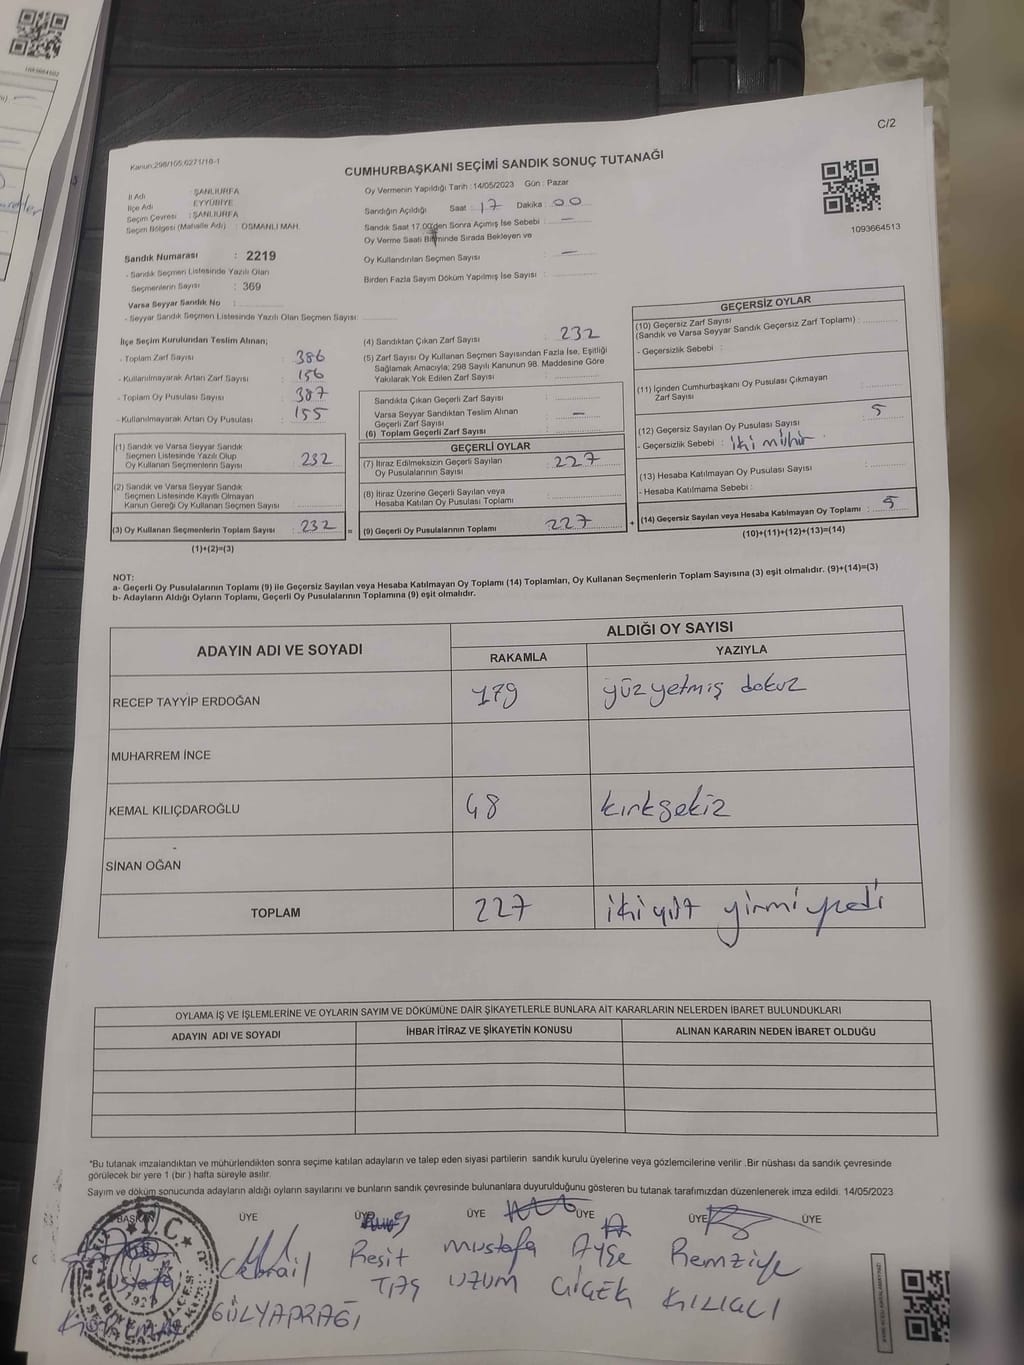 1093664502
C/2
Kanun:298/105,6271/18-1
CUMHURBAŞKANI SEÇİMİ SANDIK SONUÇ TUTANAĞI
İl Adı : ŞANLIURFA
İlçe Adı : EYYÜBİYE
Seçim Çevresi : ŞANLIURFA
Seçim Bölgesi (Mahalle Adı) : OSMANLI MAH.
Oy Vermenin Yapıldığı Tarih : 14/05/2023 Gün : Pazar
Sandığın Açıldığı Saat : 17 Dakika : 00
Sandık Saat 17.00'den Sonra Açımış İse Sebebi : —
Oy Verme Saati Bitiminde Sırada Bekleyen ve
Oy Kullandırılan Seçmen Sayısı : —
Birden Fazla Sayım Döküm Yapılmış İse Sayısı :
1093664513
Sandık Numarası : 2219
- Sandık Seçmen Listesinde Yazılı Olan
Seçmenlerin Sayısı : 369
Varsa Seyyar Sandık No :
- Seyyar Sandık Seçmen Listesinde Yazılı Olan Seçmen Sayısı:
İlçe Seçim Kurulundan Teslim Alınan;
- Toplam Zarf Sayısı : 386
- Kullanılmayarak Artan Zarf Sayısı : 156
- Toplam Oy Pusulası Sayısı : 387
- Kullanılmayarak Artan Oy Pusulası : 155
(1) Sandık ve Varsa Seyyar Sandık
Seçmen Listesinde Yazılı Olup
Oy Kullanan Seçmenlerin Sayısı : 232
(2) Sandık ve Varsa Seyyar Sandık
Seçmen Listesinde Kayıtlı Olmayan
Kanun Gereği Oy Kullanan Seçmen Sayısı :
(3) Oy Kullanan Seçmenlerin Toplam Sayısı : 232 =
(1)+(2)=(3)
(4) Sandıktan Çıkan Zarf Sayısı : 232
(5) Zarf Sayısı Oy Kullanan Seçmen Sayısından Fazla İse, Eşitliği
Sağlamak Amacıyla; 298 Sayılı Kanunun 98. Maddesine Göre
Yakılarak Yok Edilen Zarf Sayısı :
Sandıkta Çıkan Geçerli Zarf Sayısı :
Varsa Seyyar Sandıktan Teslim Alınan
Geçerli Zarf Sayısı : —
(6) Toplam Geçerli Zarf Sayısı :
GEÇERLİ OYLAR
(7) İtiraz Edilmeksizin Geçerli Sayılan
Oy Pusulalarının Sayısı : 227
(8) İtiraz Üzerine Geçerli Sayılan veya
Hesaba Katılan Oy Pusulası Toplamı :
(9) Geçerli Oy Pusulalarının Toplamı : 227 +
GEÇERSİZ OYLAR
(10) Geçersiz Zarf Sayısı
(Sandık ve Varsa Seyyar Sandık Geçersiz Zarf Toplamı) :
- Geçersizlik Sebebi :
(11) İçinden Cumhurbaşkanı Oy Pusulası Çıkmayan
Zarf Sayısı :
(12) Geçersiz Sayılan Oy Pusulası Sayısı : 5
- Geçersizlik Sebebi : iki mühür
(13) Hesaba Katılmayan Oy Pusulası Sayısı :
- Hesaba Katılmama Sebebi :
(14) Geçersiz Sayılan veya Hesaba Katılmayan Oy Toplamı : 5
(10)+(11)+(12)+(13)=(14)
NOT:
a- Geçerli Oy Pusulalarının Toplamı (9) ile Geçersiz Sayılan veya Hesaba Katılmayan Oy Toplamı (14) Toplamları, Oy Kullanan Seçmenlerin Toplam Sayısına (3) eşit olmalıdır. (9)+(14)=(3)
b- Adayların Aldığı Oyların Toplamı, Geçerli Oy Pusulalarının Toplamına (9) eşit olmalıdır.
ADAYIN ADI VE SOYADI ALDIĞI OY SAYISI
RAKAMLA YAZIYLA
RECEP TAYYİP ERDOĞAN 179 yüzyetmiş dokuz
MUHARREM İNCE
KEMAL KILIÇDAROĞLU 48 kırksekiz
SİNAN OĞAN
TOPLAM 227 ikiyüz yirmi yedi
OYLAMA İŞ VE İŞLEMLERİNE VE OYLARIN SAYIM VE DÖKÜMÜNE DAİR ŞİKAYETLERLE BUNLARA AİT KARARLARIN NELERDEN İBARET BULUNDUKLARI
ADAYIN ADI VE SOYADI İHBAR İTİRAZ VE ŞİKAYETİN KONUSU ALINAN KARARIN NEDEN İBARET OLDUĞU
"Bu tutanak imzalandıktan ve mühürlendikten sonra seçime katılan adayların ve talep eden siyasi partilerin sandık kurulu üyelerine veya gözlemcilerine verilir .Bir nüshası da sandık çevresinde
görülecek bir yere 1 (bir ) hafta süreyle asılır.
Sayım ve döküm sonucunda adayların aldığı oyların sayılarını ve bunların sandık çevresinde bulunanlara duyurulduğunu gösteren bu tutanak tarafımızdan düzenlenerek imza edildi. 14/05/2023
BAŞKAN ÜYE ÜYE ÜYE ÜYE ÜYE ÜYE
Mustafa Cebrail Reşit Mustafa Ayşe Remziye
GÜLYAPRAĞI TAŞ UZUM ÇİÇEK KILIÇCI
T.C.